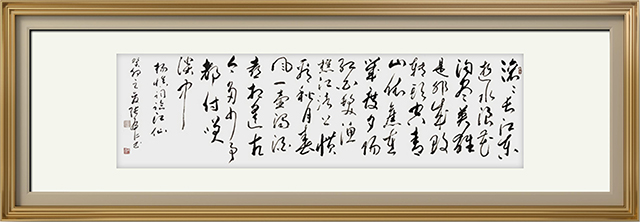 滚々长江东
逝水浪花
淘尽英雄
是非成败
转头空青
山依旧在
几度夕阳
红白髮渔
樵江渚上惯
看秋月春
风一壶浊酒
喜相逢古
今多少事
都付笑
谈中
杨慎词临江仙
癸卯之夏